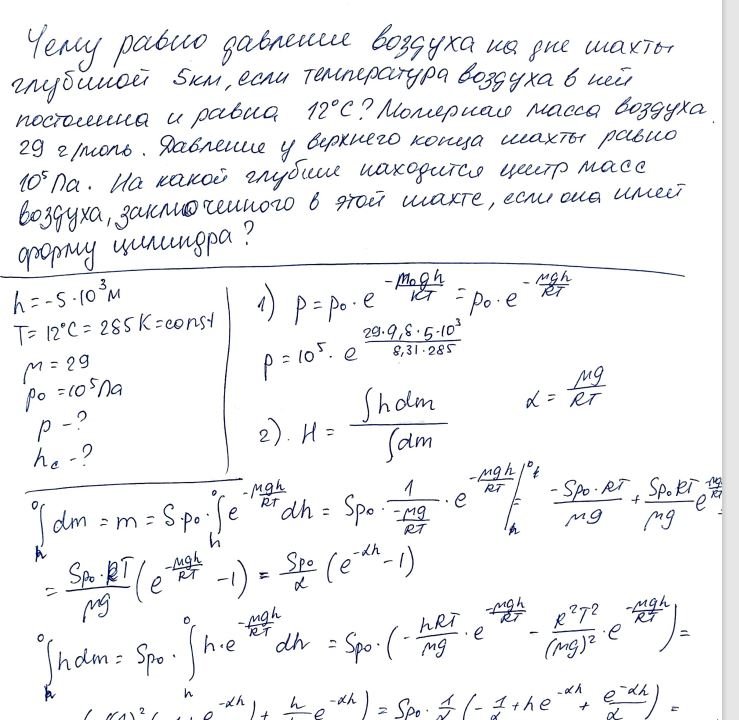 Чему равно давление воздуха на дне шахты
глубиной 5км, если температура воздуха в ней
постоянна и равна 12°C? Молярная масса воздуха
29 г/моль. Давление у верхнего конца шахты равно
10⁵ Па. На какой глубине находится центр масс
воздуха, заключенного в этой шахте, если она имеет
форму цилиндра?
h = -5·10³ м
T = 12°C = 285 K = const
M = 29
p₀ = 10⁵ Па
p - ?
h_c - ?
1) p = p₀ · e^(-m₀gh/kT) = p₀ · e^(-Mgh/RT)
p = 10⁵ · e^(29·9,8·5·10³/8,31·285)
2). H = ∫hdm / ∫dm α = Mg/RT
∫dm = m = S·p₀ · ∫e^(-Mgh/RT) dh = Sp₀ · 1/(-Mg/RT) · e^(-Mgh/RT) |⁰ₕ = -Sp₀·RT/Mg + Sp₀RT/Mg e^(-Mgh/RT)
= Sp₀·RT/Mg (e^(-Mgh/RT) - 1) = Sp₀/α (e^(-αh) - 1)
∫hdm = Sp₀ · ∫h·e^(-Mgh/RT) dh = Sp₀ · (-hRT/Mg · e^(-Mgh/RT) - R²T²/(Mg)² · e^(-Mgh/RT)) =
e^(-αh)) + h/ e^(-αh)) = Sp₀ · 1/α (-1/α + he^(-αh) + e^(-αh)/α) =